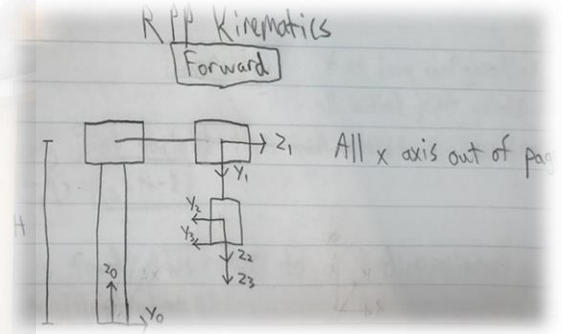 RPP Kinematics
Forward
Z1
All x axis out of pa
Y1
H
Y2
Y3
Z2
Z3
Z0
Y0